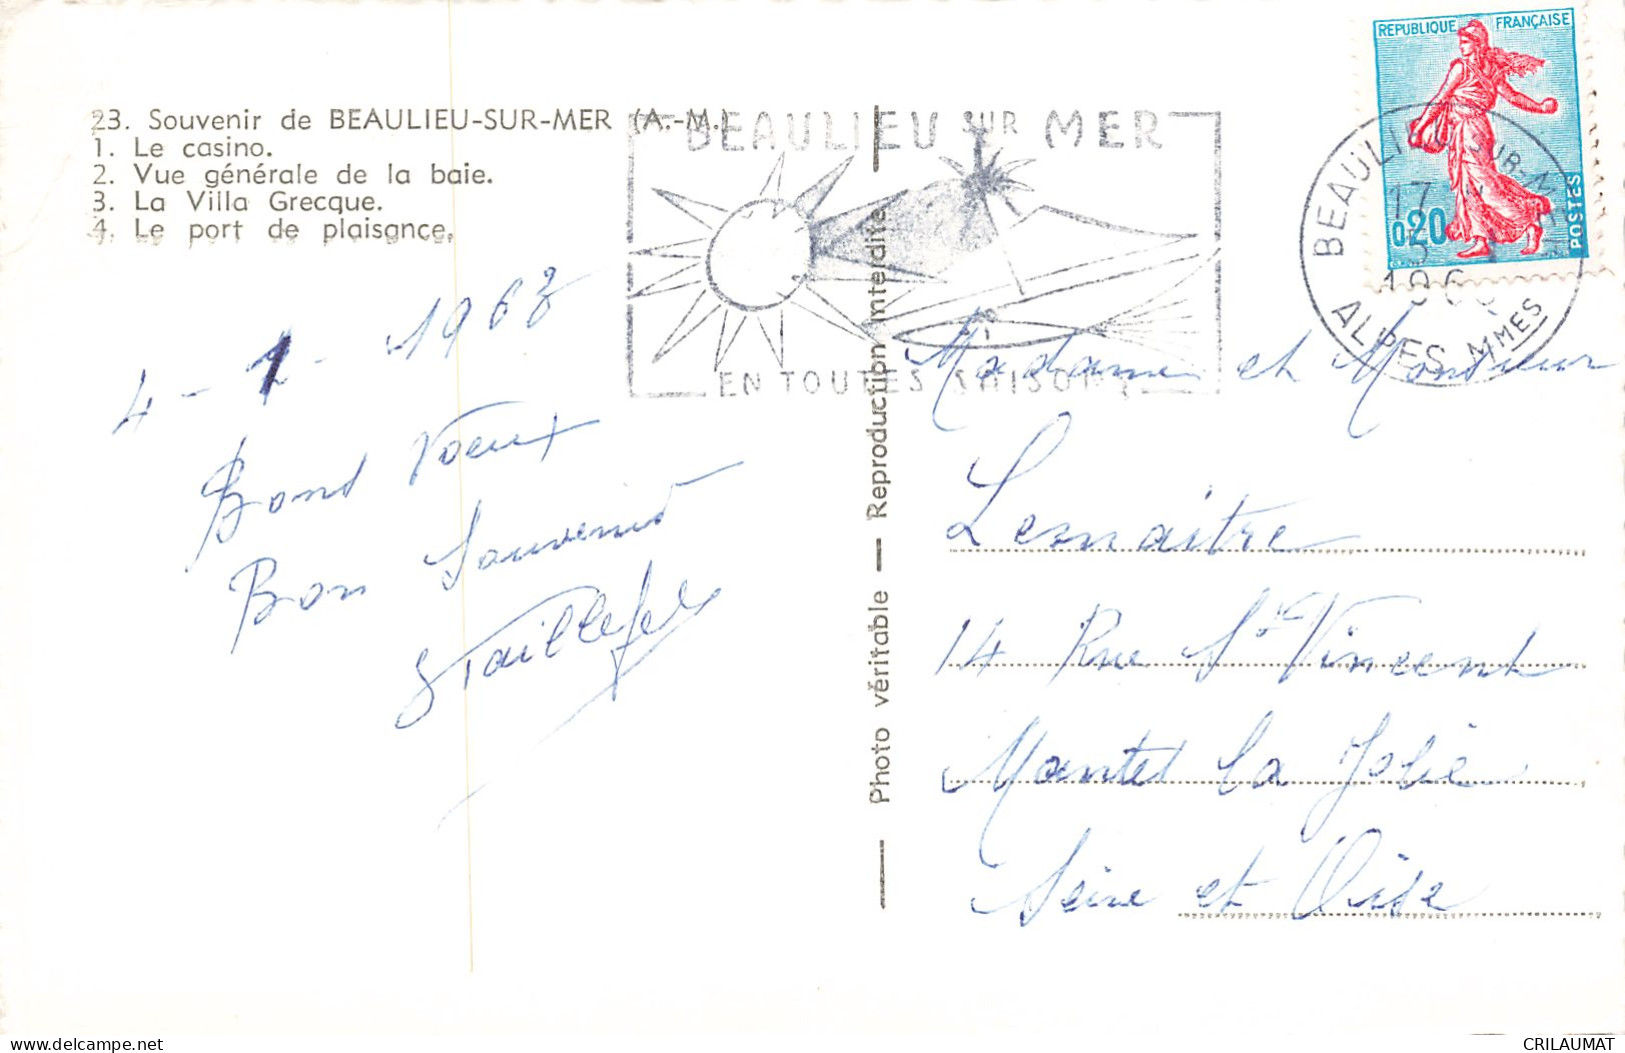 23. Souvenir de BEAULIEU-SUR-MER (A.-M.)
1. Le casino.
2. Vue générale de la baie.
3. La Villa Grecque.
4. Le port de plaisance.
BEAULIEU SUR MER
EN TOUTES SAISONS
REPUBLIQUE FRANÇAISE
0,20
POSTES
BEAULIEU-SUR-MER
17
5
196
ALPES MMES
4 - 1 - 1963
Bons Voeux
Bon Souvenir
Photo véritable — Reproduction interdite
Madame et Monsieur
Lemaitre
14 Rue St Vincent
Mantes la Jolie
Seine et Oise
CRILAUMAT